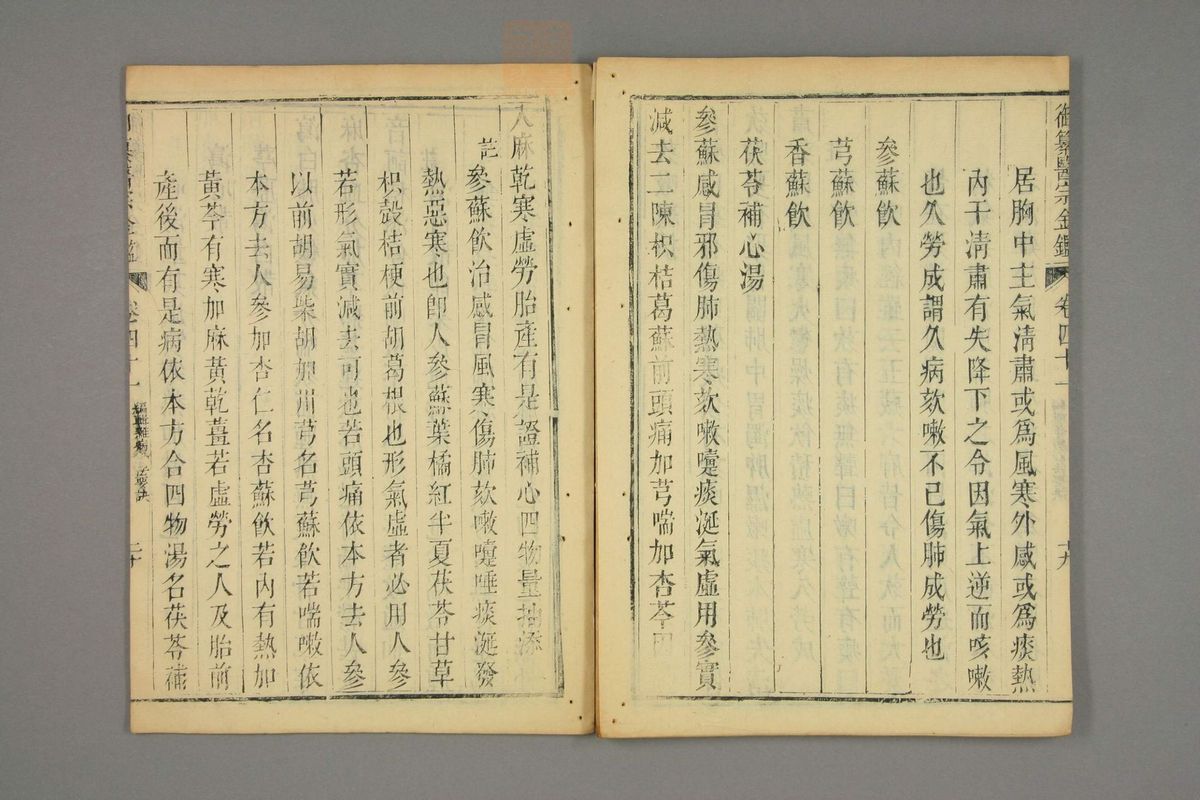 御纂醫宗金鑑 卷四十一 十九
居胸中主氣清肅或爲風寒外感或爲痰熱
內干清肅有失降下之令因氣上逆而咳嗽
也久勞成謂久病欬嗽不已傷肺成勞也
參蘇飲
芎蘇飲
香蘇飲
茯苓補心湯
參蘇感冒邪傷肺熱寒欬嗽嚏痰涎氣虛用參實
減去二陳枳桔葛蘇前頭痛加芎喘加杏芩因
入麻乾寒虛勞胎產有是證補心四物量抽添
註參蘇飲治感冒風寒傷肺欬嗽嚏唾痰涎發
熱惡寒也卽人參蘇葉橘紅半夏茯苓甘草
枳殼桔梗前胡葛根也形氣虛者必用人參
若形氣實減去可也若頭痛依本方去人參
以前胡易柴胡加川芎名芎蘇飲若喘嗽依
本方去人參加杏仁名杏蘇飲若內有熱加
黃芩有寒加麻黃乾薑若虛勞之人及胎前
產後而有是病依本方合四物湯名茯苓補
醫宗金鑑 卷四十一 編輯雜病心法要訣 二十